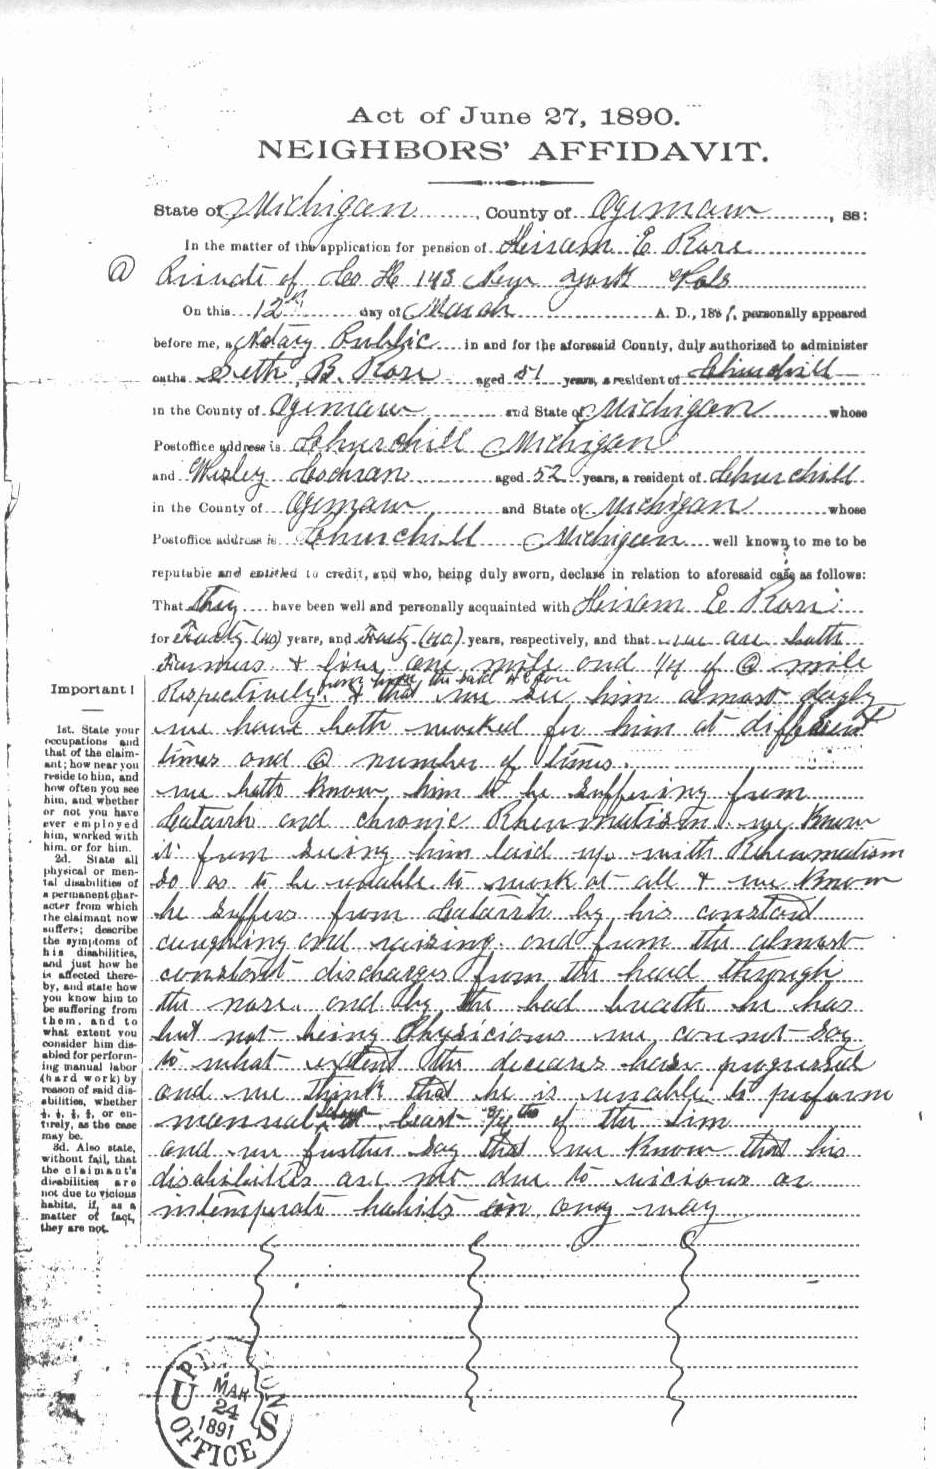 Act of June 27, 1890.
NEIGHBORS' AFFIDAVIT.
State of Michigan, County of Ogemaw, ss:
In the matter of the application for pension of Hiram E Rose
@ Private of Co H 143 New York Vols
On this 12th day of March A. D., 1891, personally appeared
before me, a Notary Public in and for the aforesaid County, duly authorized to administer
oaths Seth B. Rose aged 51 years, a resident of Churchill
in the County of Ogemaw and State of Michigan whose
Postoffice address is Churchill Michigan
and Wesley Cochran aged 52 years, a resident of Churchill
in the County of Ogemaw and State of Michigan whose
Postoffice address is Churchill Michigan well known to me to be
reputable and entitled to credit, and who, being duly sworn, declare in relation to aforesaid case as follows:
That they have been well and personally acquainted with Hiram E Rose
for Forty (40) years, and Forty (40) years, respectively, and that we are both
Farmers & live one mile and 1/4 of @ mile
Respectively from him the said & that we see him almost dayly
we have both worked for him at different
times and @ number of times.
we both know him to be suffering from
Catarrh and chronic Rheumatism. we know
it from seeing him laid up with Rheumatism
so as to be unable to work at all & we know
he suffers from Catarrh by his constant
coughing and raising and from the almost
constant discharges from the head through
the nose. and by the bad breath he has
but not being Physicians we cannot say
to what extent the deceases have progressed
and we think that he is unable to perform
manual labor at least 3/4ths of the time
and we further say that we know that his
disabilities are not due to vicious or
intemperate habits in any way
Important!
1st. State your
occupations and
that of the claim-
ant; how near you
reside to him, and
how often you see
him, and whether
or not you have
ever employed
him, worked with
him, or for him.
2d. State all
physical or men-
tal disabilities of
a permanent char-
acter from which
the claimant now
suffers; describe
the symptoms of
his disabilities,
and just how he
is affected there-
by, and state how
you know him to
be suffering from
them, and to
what extent you
consider him dis-
abled for perform-
ing manual labor
(hard work) by
reason of said dis-
abilities, whether
¼, ½, ¾, or en-
tirely, as the case
may be.
3d. Also state,
without fail, that
the claimant's
disabilities are
not due to vicious
habits, if, as a
matter of fact,
they are not.
U S PENSION OFFICE
MAR
24
1891